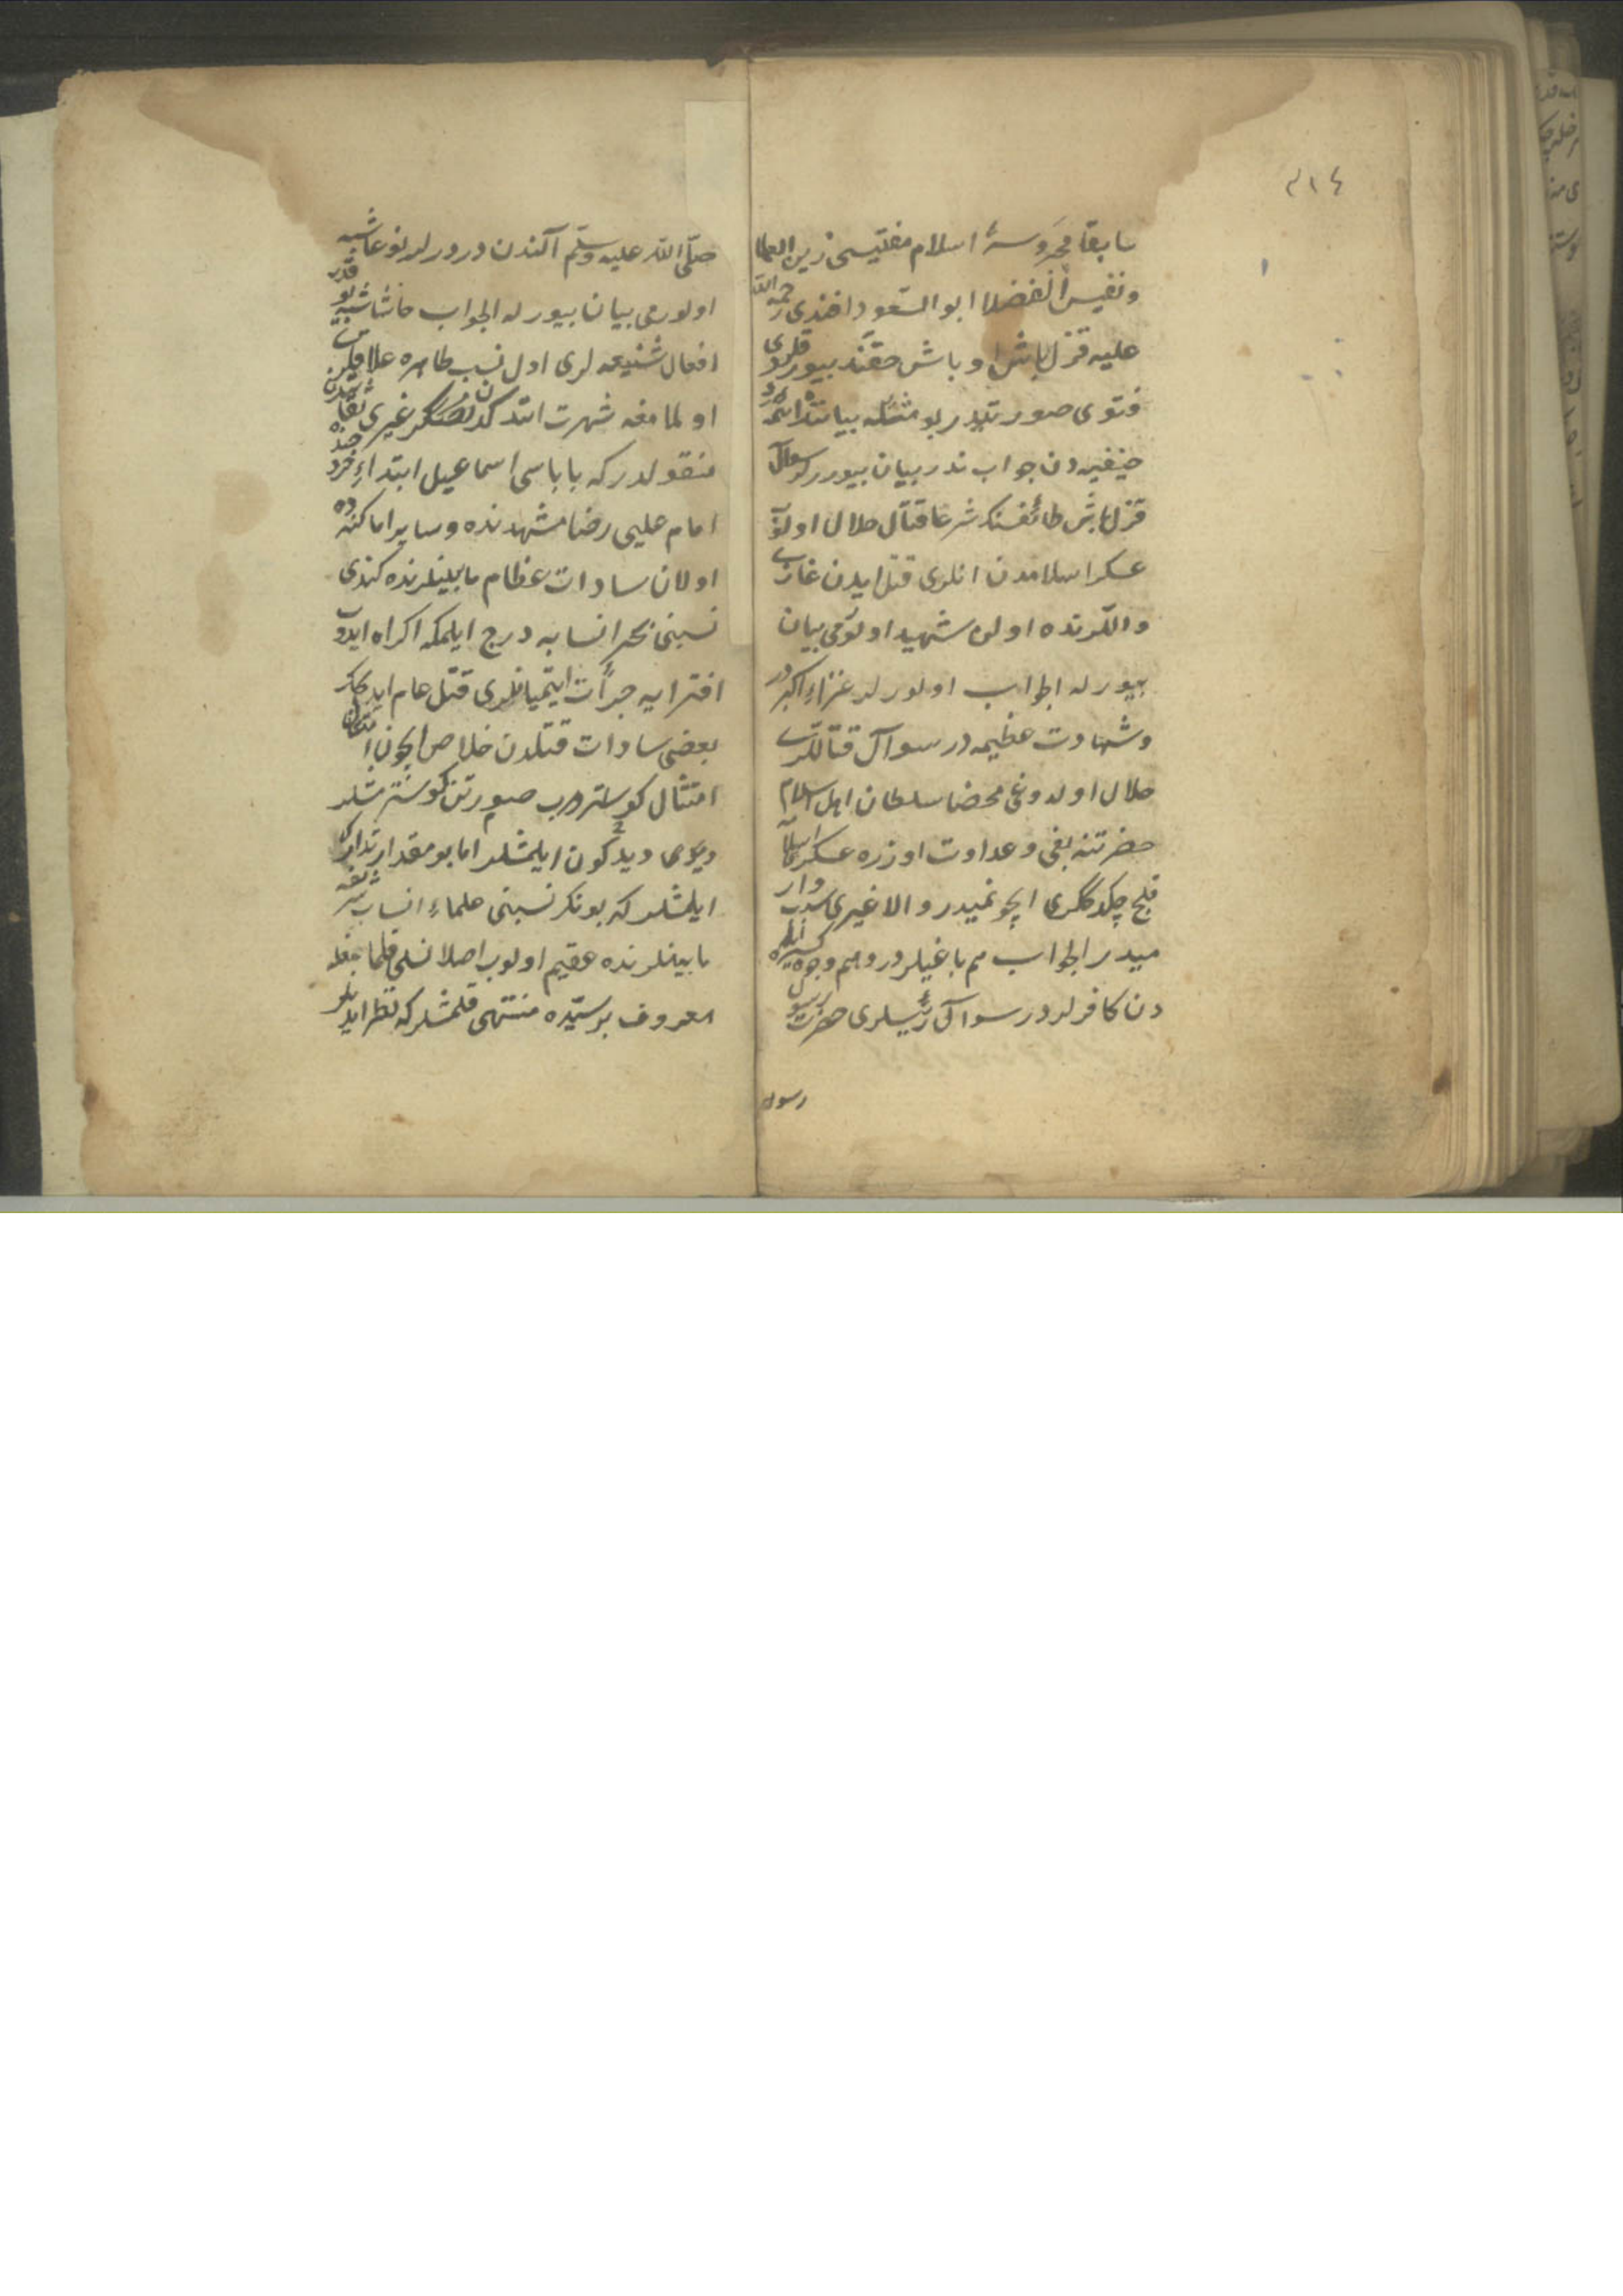 ٣١٤
سابقا محروسۀ اسلام مفتیسی زین العلما
ونفیس الفضلا ابو السعود افندی رحمة الله
علیه قزل باش اوباش حقنده بیوردقلری
فتوی صورتیدر بو مسئله بیاننده ائمۀ
حنفیه دن جواب ندر بیان بیورر لر سوال
قزل باش طائفه سنك شرعا قتال حلال اولوب
عسکر اسلامدن انلری قتل ایدن غازی
واللرنده اولن شهید اولورمی بیان
بیورله الجواب اولور لر غزاء اکبر در
وشهادت عظیمه در سوال قتاللری
حلال اولدوغی محضا سلطان اهل اسلام
حضرتنه بغی وعداوت اوزره عسکر اسلامه
قلج چکدکلری ایچونمیدر والا غیری سبب وار
میدر الجواب هم باغیلردر وهم وجوه کثیره
دن کافر لردر سوال رئیسلری حضرت رسول
رسول
صلی الله علیه وسلم آلندن درورلر بو نوعا شبه
اولورمی بیان بیورله الجواب حاشا شبه یوقدر
افعال شنیعه لری اول نسب طاهره علاقه لری
اولمامغه شهرت ایتدکدن غیری ثقاتدن
منقولدر که باباسی اسماعیل ابتداء خروجنده
امام علی رضا مشهدنده وسایر اماکنده
اولان سادات عظام مابینلرنده کندی
نسبنی بحر انسابه درج ایلمکه اکراه ایدوب
افترایه جرأت ایتمیانلری قتل عام ایدیجك
بعضی سادات قتلدن خلاص ایچون
امتثال کوستروب صورتن کوسترمشلر
دیدکون ایلمشلر اما بو مقدار تدارك
ایلمشلر که بونك نسبنی علماء انساب شریفه
مابینلرنده عقیم اولوب اصلا نسلی قلمامغله
معروف بر سیده منتهی قلمشلر که نظر ایدنلر